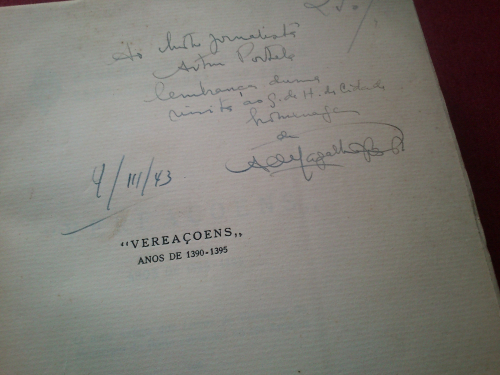 Ao ilustre jornalista
Artur Portela
lembrança duma
visita ao G. de H. da Cidade
homenagem
de
A. de Magalhães
9/III/43
“VEREAÇOENS„
ANOS DE 1390-1395